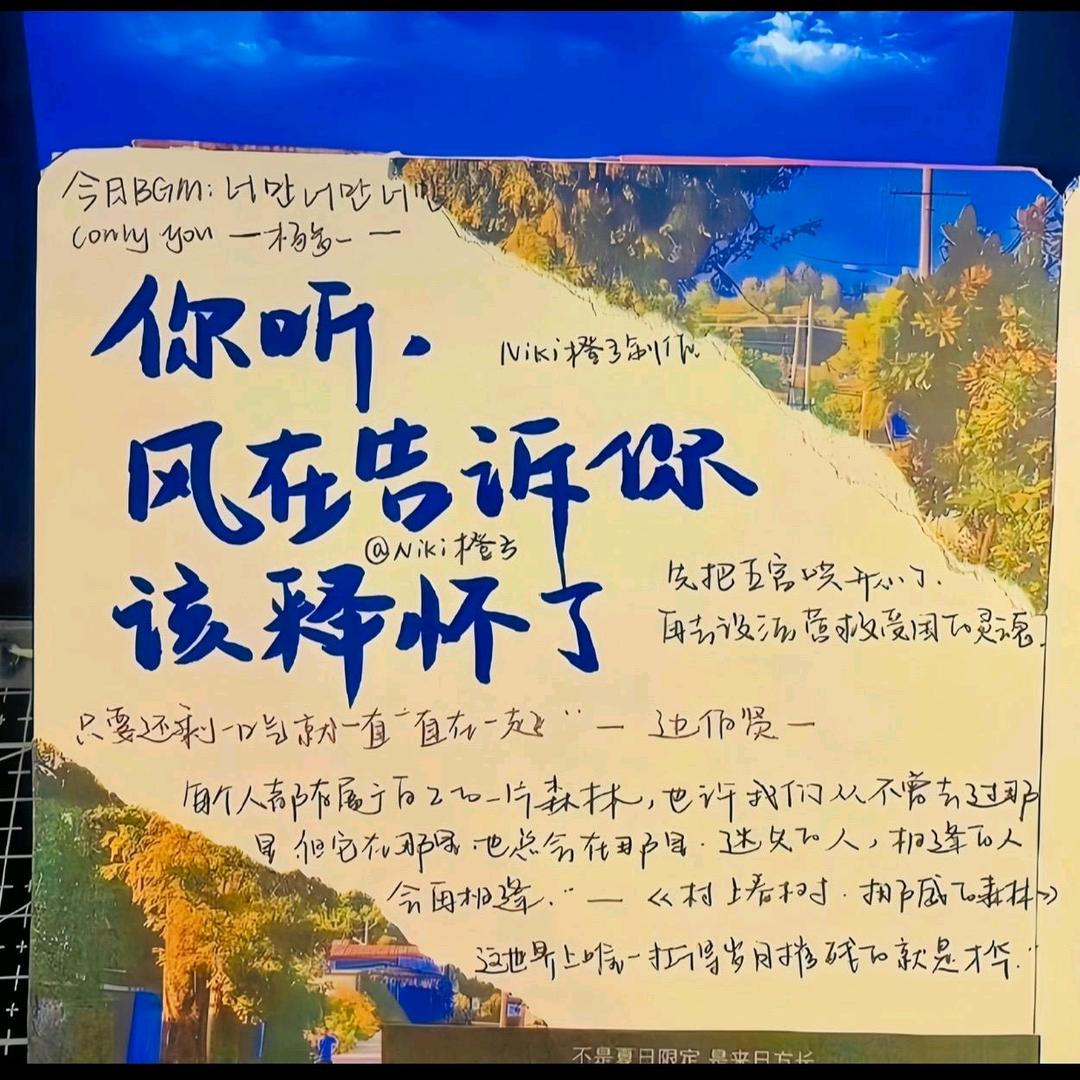 今日BGM: 너만 너만 너만
(only you — 杨多一 —
你听.
Niki橙子制作.
风在告诉你
@Niki橙子
该释怀了
先把五官哭开心了.
再去设法营救受困的灵魂.
只要还剩一口气就一直一直在一起" — 边伯贤 —
每个人都有属于自己的一片森林,也许我们从不曾去过那
里 但它在那里.也总会在那里.迷失的人,相逢的人
会再相逢." — 《村上春树.挪威的森林》
这世界上唯一扛得岁月摧残的就是才华."
不是夏日限定 是来日方长